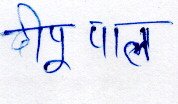 दीपू पाल